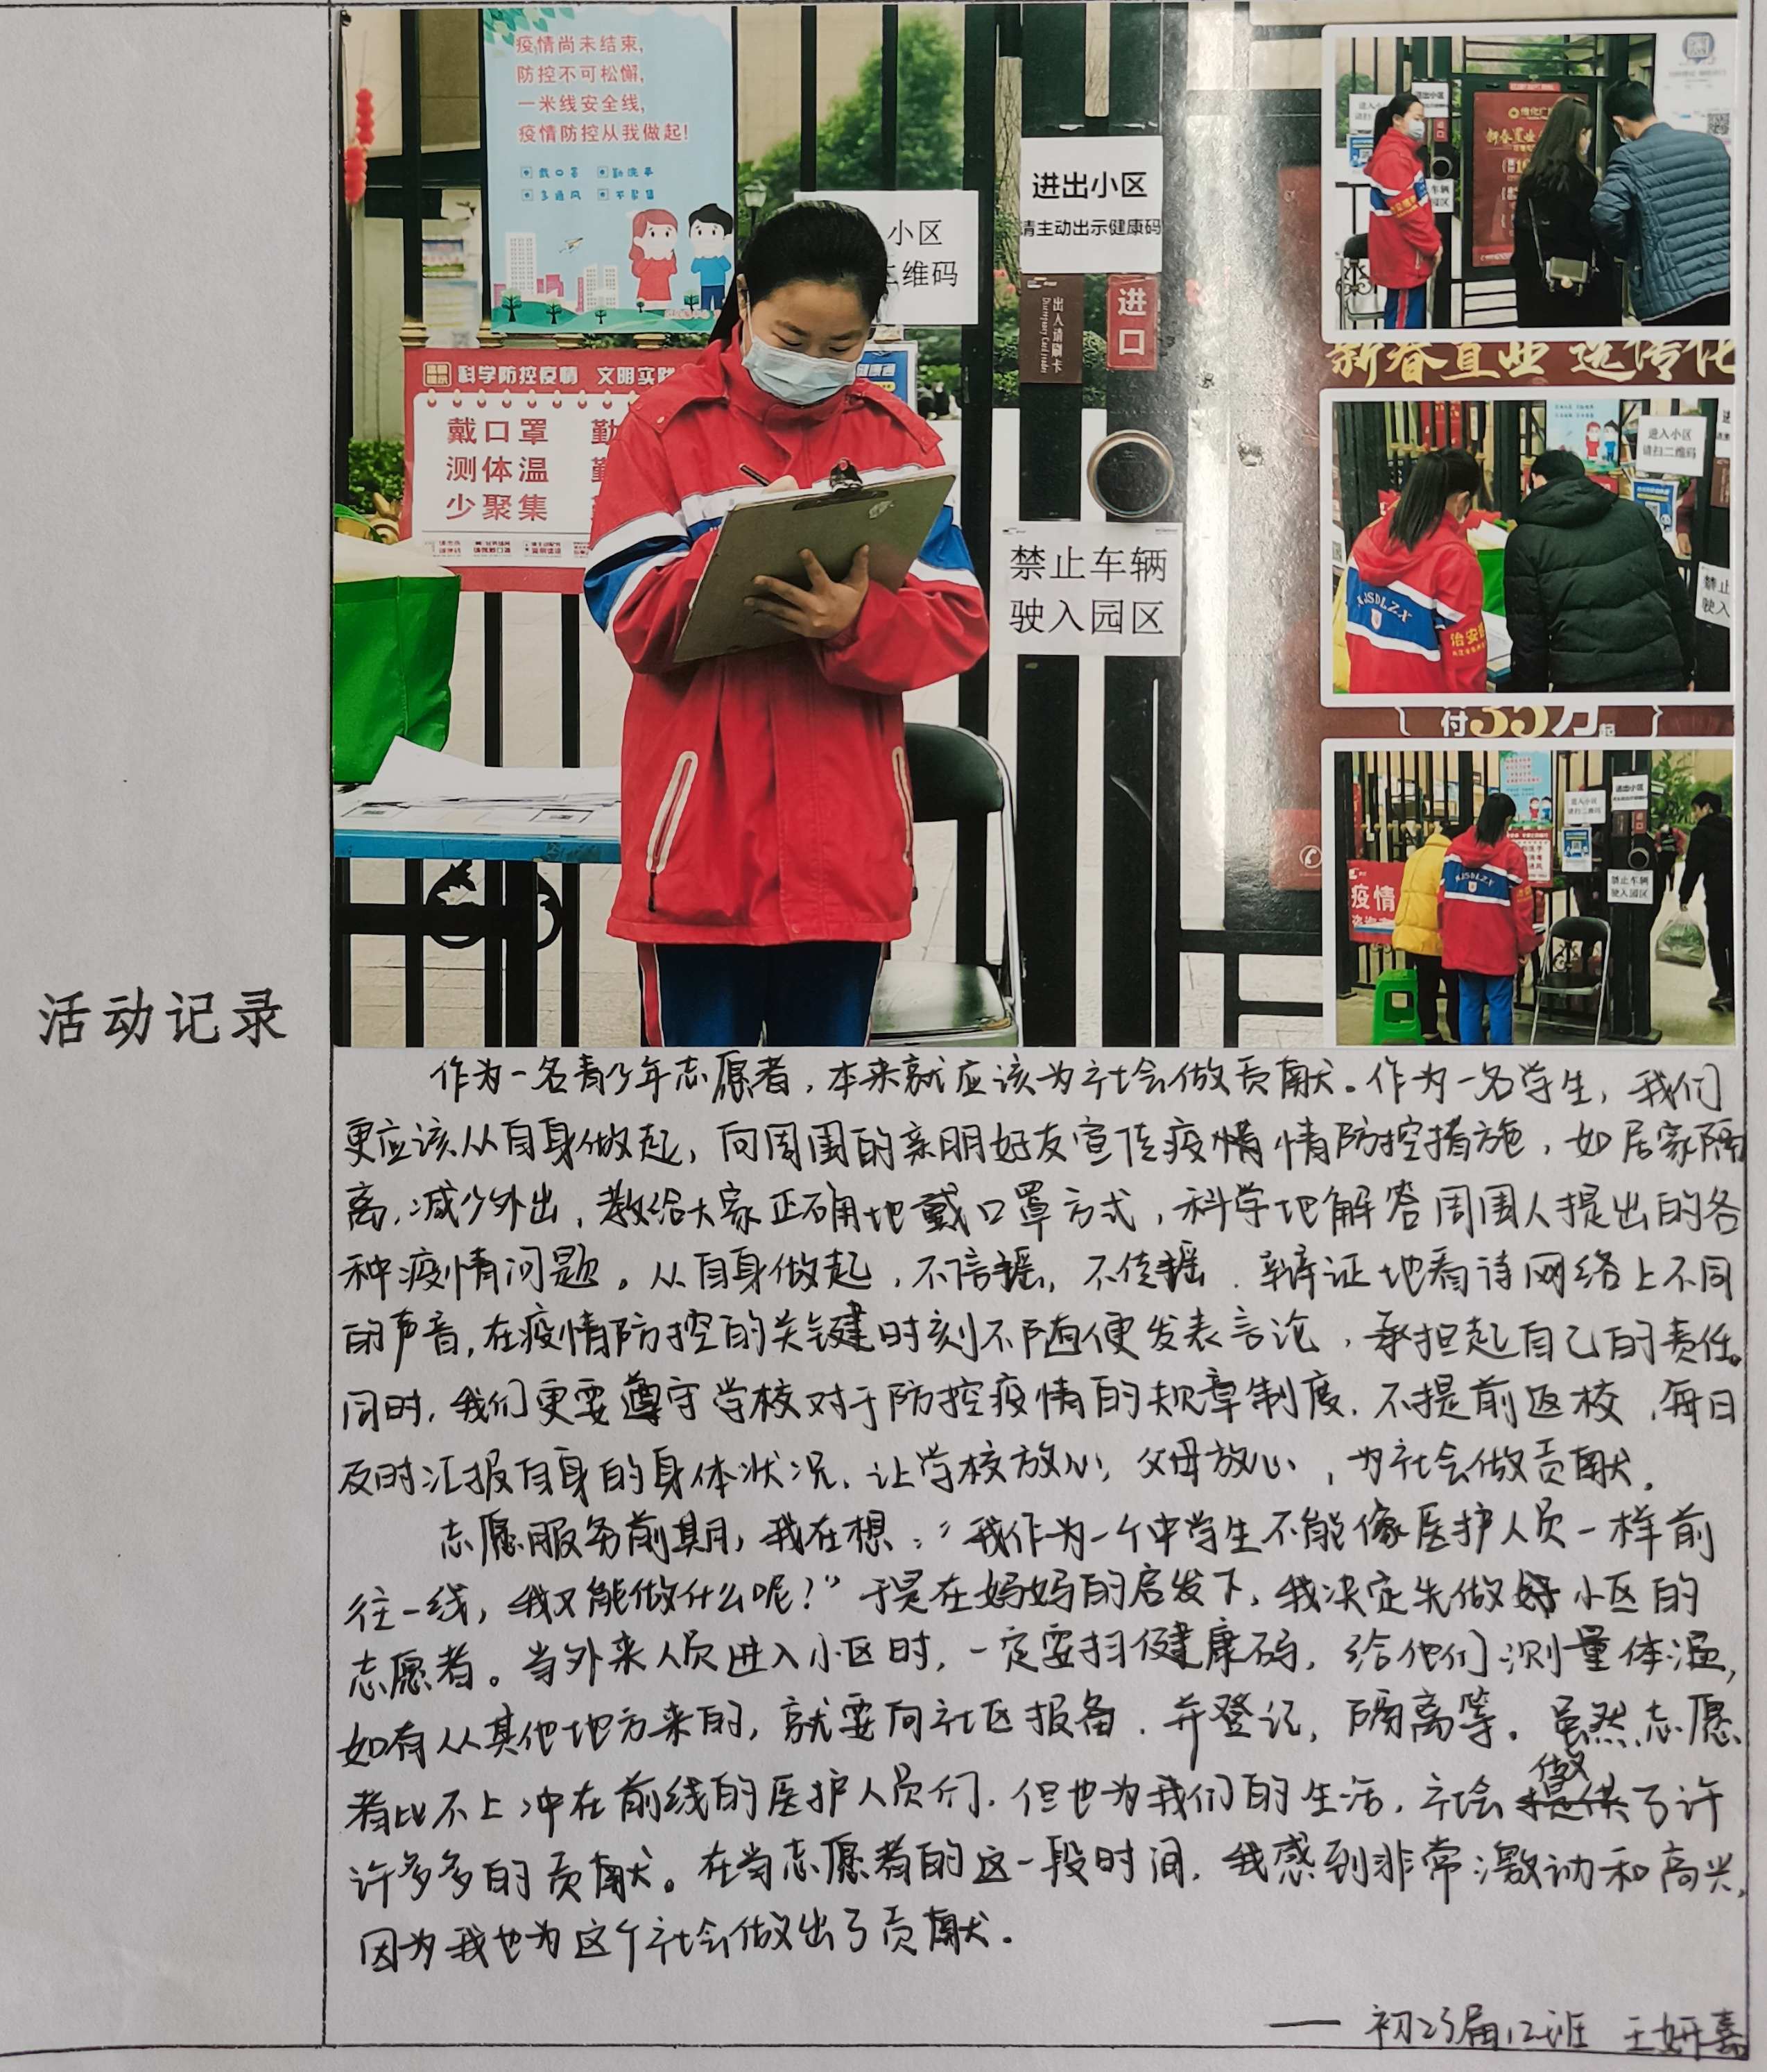 疫情尚未结束,
防控不可松懈,
一米线安全线,
疫情防控从我做起!
戴口罩 勤洗手
多通风 不聚集
小区
二维码
进出小区
请主动出示健康码
出入请刷卡
进口
科学防控疫情 文明实践
戴口罩 勤
测体温 勤
少聚集
禁止车辆
驶入园区
新春置业
进入小区
请扫二维码
XJSDLZX
治安
付35万起
进入小区
请扫二维码
进出小区
XJSDLZX
禁止车辆
驶入园区
疫情
活动记录
作为一名青少年志愿者,本来就应该为社会做贡献。作为一名学生,我们
更应该从自身做起,向周围的亲朋好友宣传疫情情防控措施,如居家隔
离,减少外出,教给大家正确地戴口罩方式,科学地解答周围人提出的各
种疫情问题。从自身做起,不信摇,不传摇,辩证地看待网络上不同
的声音,在疫情防控的关键时刻不随便发表言论,承担起自己的责任。
同时,我们更要遵守学校对于防控疫情的规章制度,不提前返校,每日
及时汇报自身的身体状况,让学校放心,父母放心,为社会做贡献。
志愿服务前期,我在想:“我作为一个中学生不能像医护人员一样前
往一线,我又能做什么呢?”于是在妈妈的启发下,我决定先做好小区的
志愿者。当外来人员进入小区时,一定要扫健康码,给他们测量体温,
如有从其他地方来的,就要向社区报备,并登记,隔离等。虽然志愿
者比不上冲在前线的医护人员们,但也为我们的生活,社会做了许
许多多的贡献。在当志愿者的这一段时间,我感到非常激动和高兴,
因为我也为这个社会做出了贡献。
——初23届12班 王妍嘉